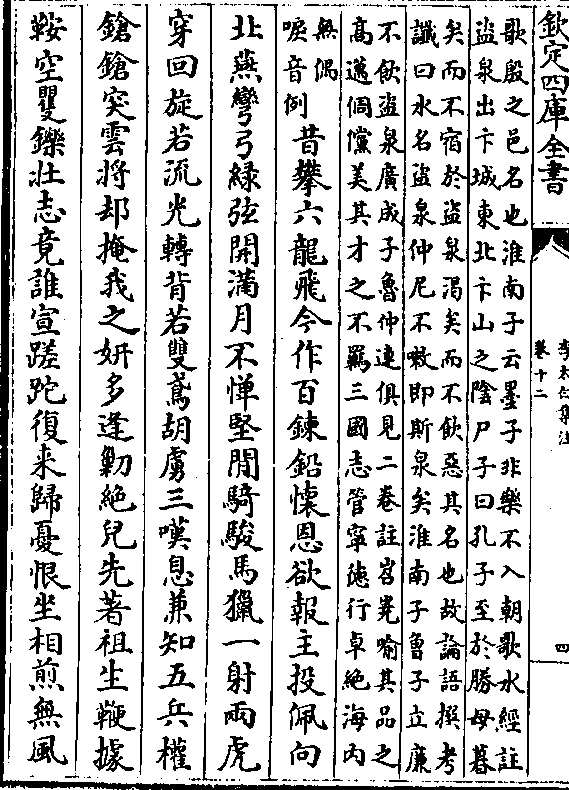 欽定四庫全書
李太白集注
卷十二
四
歌殷之邑名也淮南子云墨子非樂不入朝歌水經註
盜泉出卞城東北卞山之陰尸子曰孔子至於勝母暮
矣而不宿於盜泉渴矣而不飲惡其名也故論語撰考
讖曰水名盜泉仲尼不嗽即斯泉矣淮南子魯子立廉
不飲盜泉廣成子魯仲連俱見二卷註岧嶤喻其品之
高邁倜儻美其才之不羈三國志管寧德行卓絶海内
無偶
唳音例
昔攀六龍飛今作百鍊鉛懷恩欲報主投佩向
北燕彎弓綠弦開滿月不憚堅閒騎駿馬獵一射兩虎
穿回旋若流光轉背若雙鳶胡虜三嘆息兼知五兵權
鎗鎗突雲將却掩我之妍多逢勦絶兒先著祖生鞭據
鞍空矍鑠壯志竟誰宣蹉跎復来歸憂恨坐相煎無風